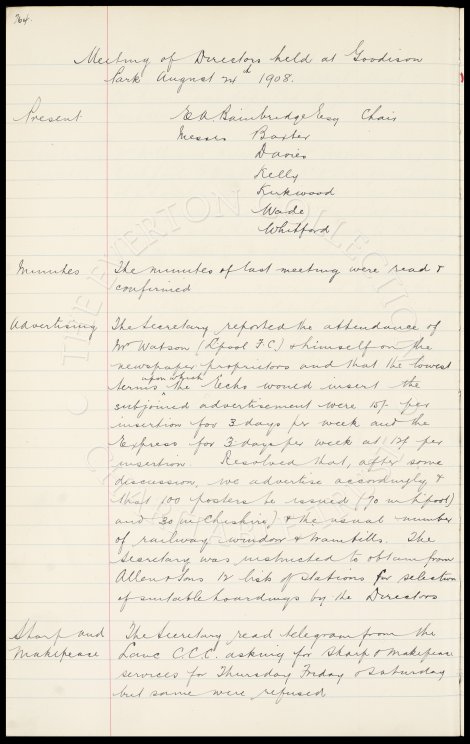 364.
Meeting of Directors held at Goodison
Park August 24th 1908.
Present E.A. Bainbridge Esq Chair
Messrs Baxter
Davies
Kelly
Kirkwood
Wade
Whitford
Minutes The minutes of last meeting were read &
confirmed
Advertising The Secretary reported the attendance of
Mr Watson (Lpool F.C.) & himself on the
newspaper proprietors and that the lowest
terms upon which the Echo would insert the
subjoined advertisement were 15/- per
insertion for 3 days per week and the
Express for 3 days per week at 12/- per
insertion. Resolved that, after some
discussion, we advertise accordingly &
that 100 posters be issued (70 in L'pool)
and 30 in Cheshire) & the usual number
of railway window & tram bills. The
Secretary was instructed to obtain from
Allen & Sons lists of stations for selection
of suitable hoardings by the Directors
Sharp and The Secretary read telegram from the
Makepeace Lanc C.C.C. asking for Sharp & Makepeace
services for Thursday Friday & Saturday
but same were refused
© THE EVERTON COLLECTION